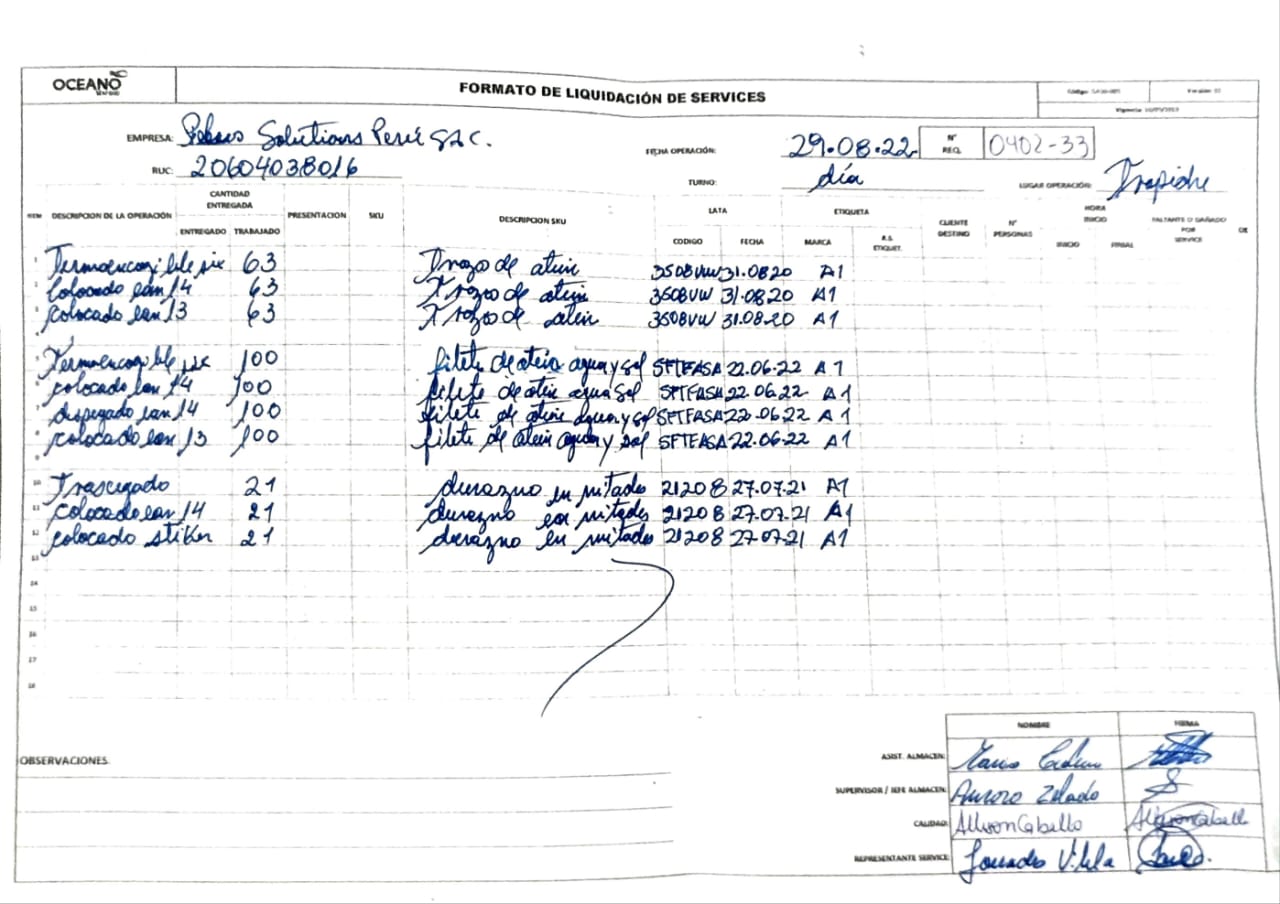 OCEANO
SEAFOOD
FORMATO DE LIQUIDACIÓN DE SERVICES
Versión: 02
Vigencia:
EMPRESA: Solutions Perú SAC.
FECHA OPERACIÓN: 29.08.22 N° REQ. 0402-33
RUC: 20604038016
TURNO: día LUGAR OPERACIÓN: Trapiche
ITEM DESCRIPCION DE LA OPERACIÓN CANTIDAD ENTREGADA PRESENTACION SKU DESCRIPCION SKU LATA ETIQUETA CLIENTE DESTINO N° PERSONAS HORA INICIO FALTANTE O DAÑADO POR DE SERVICE
ENTREGADO TRABAJADO CODIGO FECHA MARCA R.S. ETIQUET. INICIO FINAL
1 Termoencogible six 63 Trozo de atún 3508VW 31.08.20 A1
2 colocado ean 14 63 Trozo de atún 3508VW 31.08.20 A1
3 colocado ean 13 63 Trozo de atún 3508VW 31.08.20 A1
5 Termoencogible six 100 filete de atún agua y sal SFTFASA 22.06.22 A1
colocado ean 14 100 filete de atún agua sal SFTFASA 22.06.22 A1
7 despegado ean 14 100 filete de atún agua y sal SFTFASA 22.06.22 A1
8 colocado ean 13 100 filete de atún agua y sal SFTFASA 22.06.22 A1
9
10 Trasegado 21 durazno en mitades 21208 27.07.21 A1
11 colocado ean 14 21 durazno en mitades 21208 27.07.21 A1
12 colocado stiker 21 durazno en mitades 21208 27.07.21 A1
13
14
15
16
17
18
NOMBRE FIRMA
OBSERVACIONES
ASIST. ALMACEN:
SUPERVISOR / JEFE ALMACEN: Aurora
CALIDAD: Allison Caballo Allison Caballo
REPRESENTANTE SERVICE: Lourdes Vilela